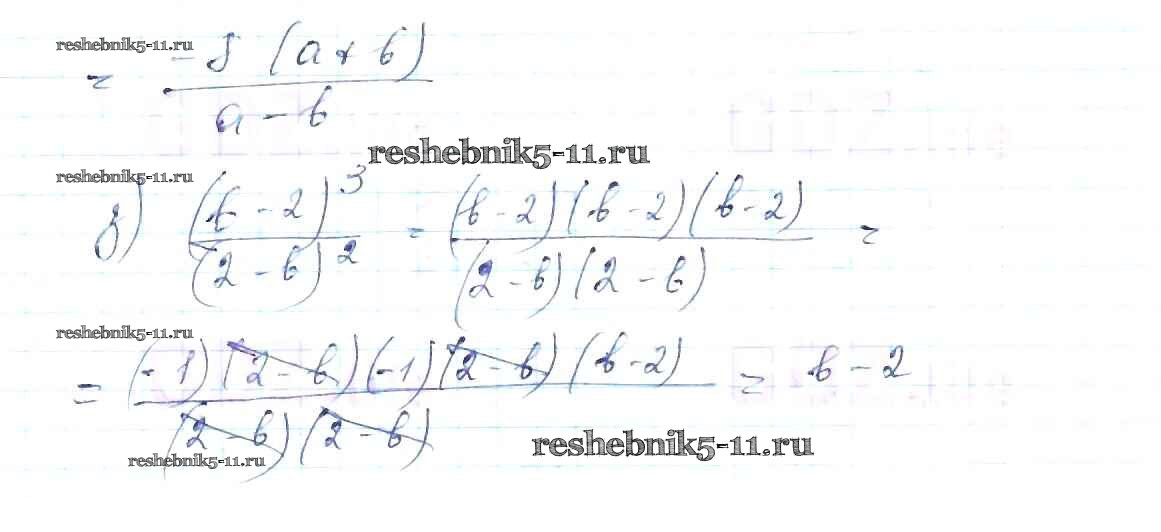 reshebnik5-11.ru
= -8 (a + b) / a - b
reshebnik5-11.ru
reshebnik5-11.ru
з) (b - 2)³ / (2 - b)² = (b - 2)(b - 2)(b - 2) / (2 - b)(2 - b) =
reshebnik5-11.ru
= (-1)(2 - b)(-1)(2 - b)(b - 2) / (2 - b)(2 - b) = b - 2
reshebnik5-11.ru
reshebnik5-11.ru